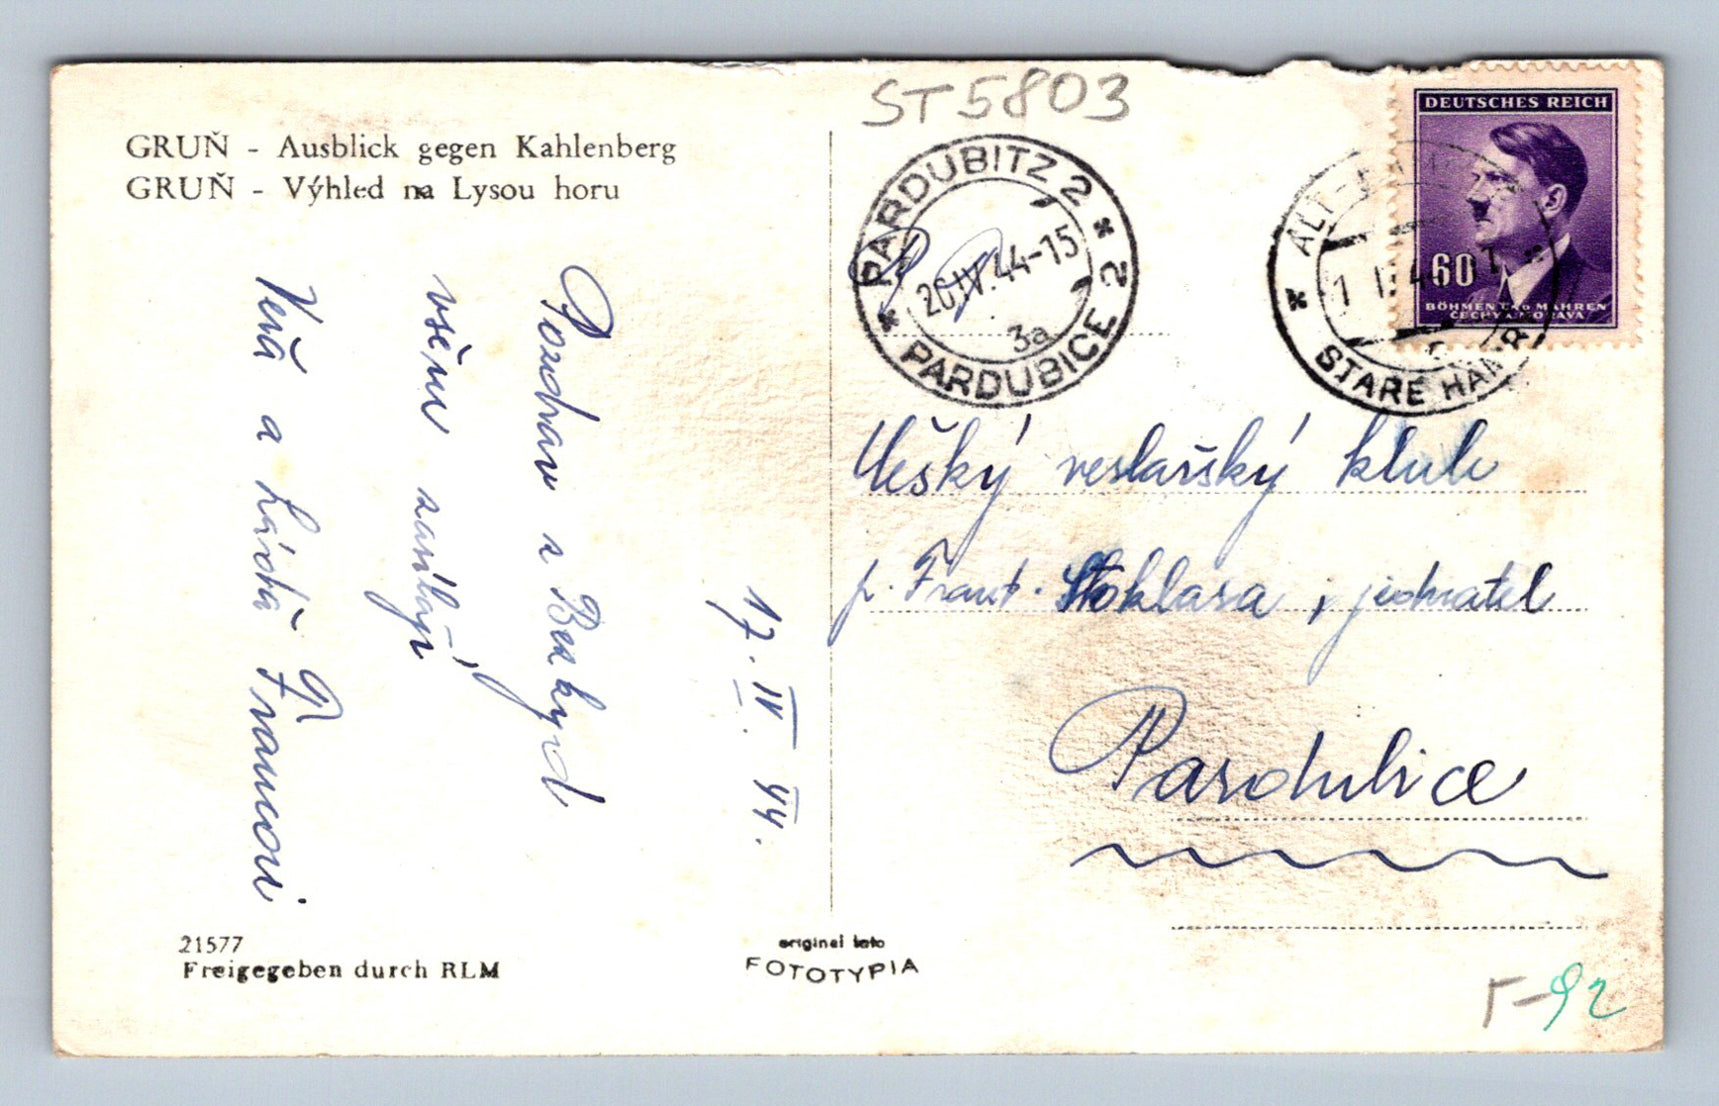 ST5803
GRUŇ - Ausblick gegen Kahlenberg
GRUŇ - Výhled na Lysou horu
PARDUBITZ 2
20.IV.44-15
3a
PARDUBICE 2
DEUTSCHES REICH
60
BÖHMEN UND MÄHREN
ČECHY A MORAVA
ALT-
STARÉ HAMR
17. IV. 44.
Pozdrav z Beskyd
všem zasílají
Věra a Láďa Francovi
veslařský klub
p. Frant. Stoklasa, jednatel
Pardubice
21577
Freigegeben durch RLM
original foto
FOTOTYPIA
Γ-92